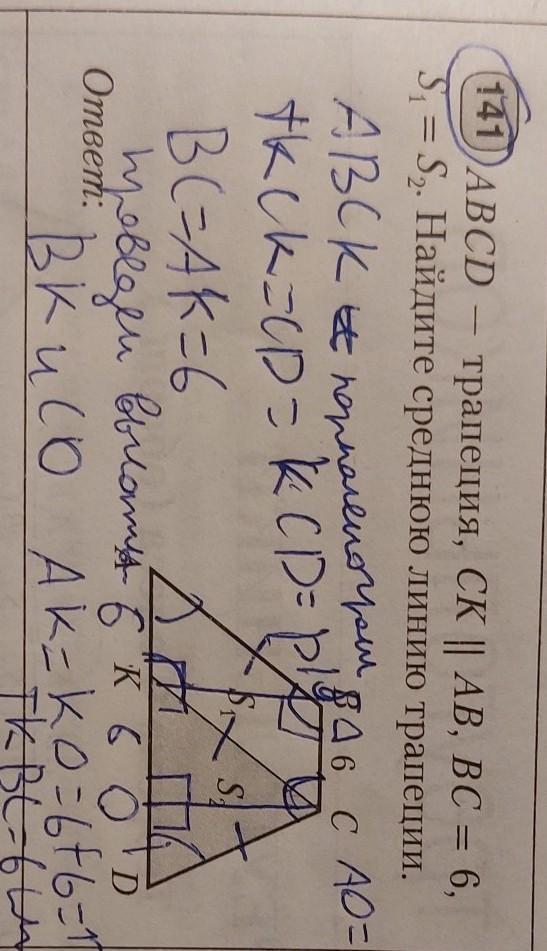 141 ABCD — трапеция, CK || AB, BC = 6,
S₁ = S₂. Найдите среднюю линию трапеции.
ABCK параллелограм
тк CK=CD= KCD= р/б Δ
BC=AK=6
проведем высоты
Ответ: BK и CO AK= KO=6+6=
тк BC=6
B 6 C AO=
S₁ S₂
A 6 K 6 O D